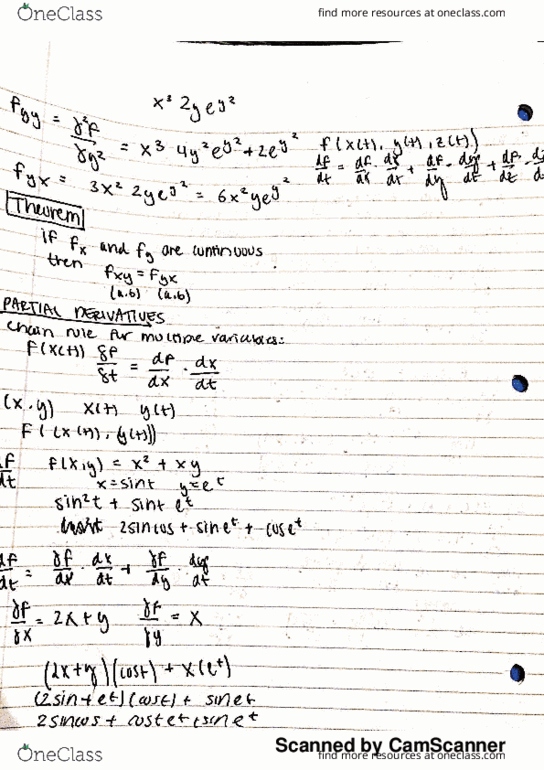 OneClass
find more resources at oneclass.com
x³ 2y e^y²
fyy = ∂²f/∂y² = x³ 4y² e^y² + 2e^y²
f(x(t), y(t), z(t))
df/dt = df/dx · dx/dt + df/dy · dy/dt + df/dz ·
fyx = 3x² 2y e^y² = 6x² y e^y²
Theorem
if fx and fy are continuous
then fxy = fyx
(a,b) (a,b)
PARTIAL DERIVATIVES
chain rule for multiple variables:
F(x(t)) δf/δt = df/dx · dx/dt
(x,y) x(t) y(t)
F((x(t), (y(t)))
df/dt f(x,y) = x² + xy
x = sint y = e^t
sin²t + sint e^t
2sincos + sin e^t + cos e^t
df/dt = ∂f/dx · dx/dt + ∂f/dy · dy/dt
∂f/∂x = 2x + y ∂f/∂y = x
(2x + y)(cost) + x(e^t)
(2sin + et)(cost) + sin et
2sincos + cost et + sin e^t
Scanned by CamScanner
OneClass
find more resources at oneclass.com